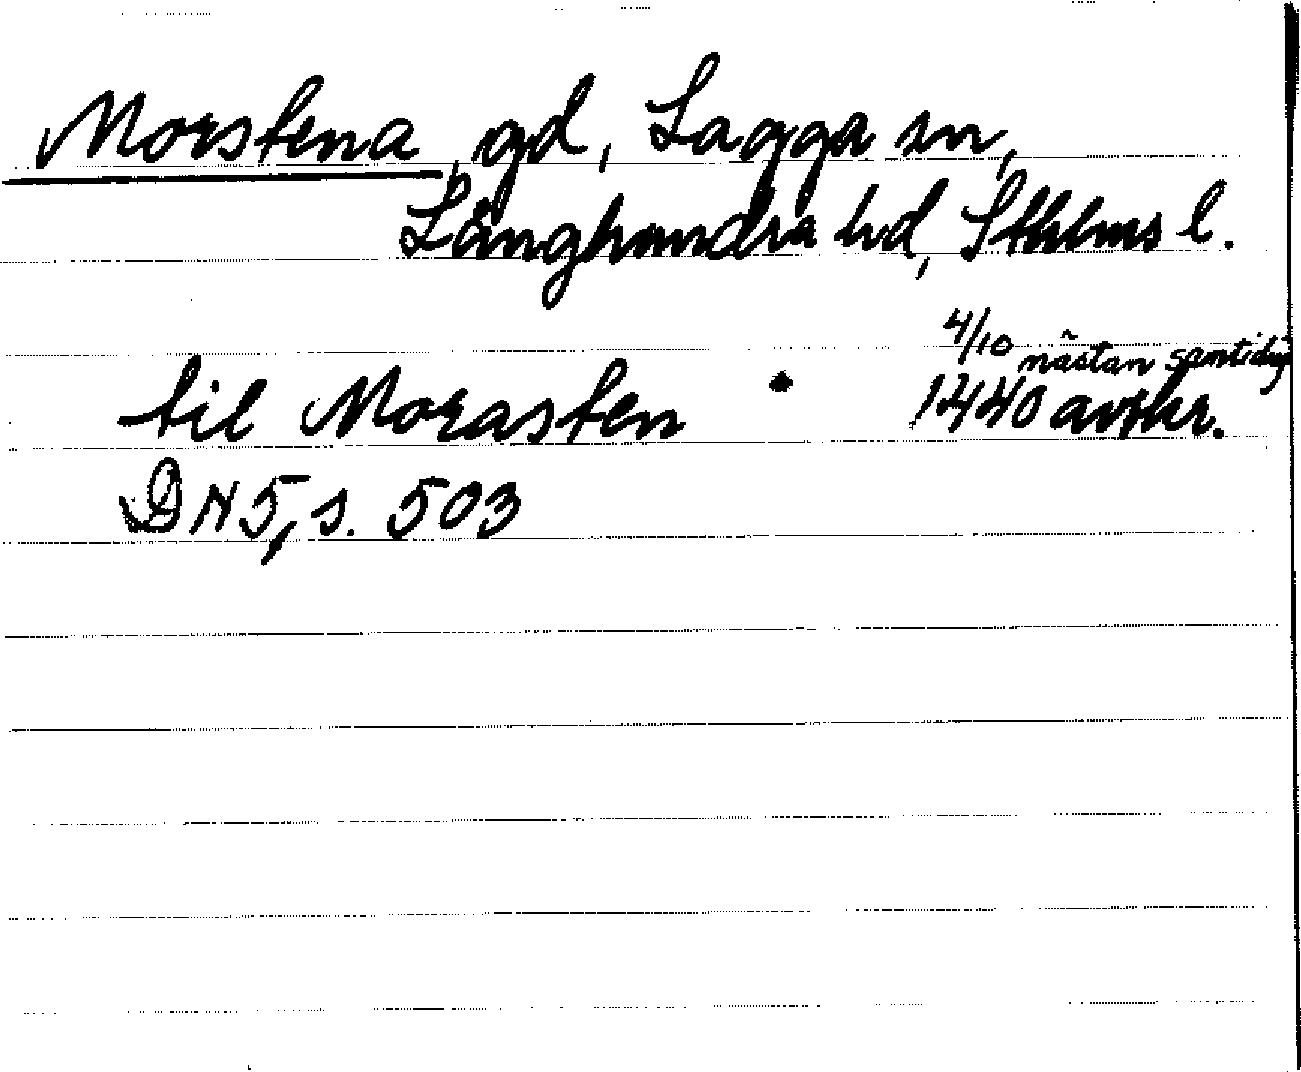 Morstena, gd, Lagga sn,
Långhundra hd, Sthlms l.
4/10 nästan samtidig
til Morasten • 1440 avskr.
DN 5, s. 503